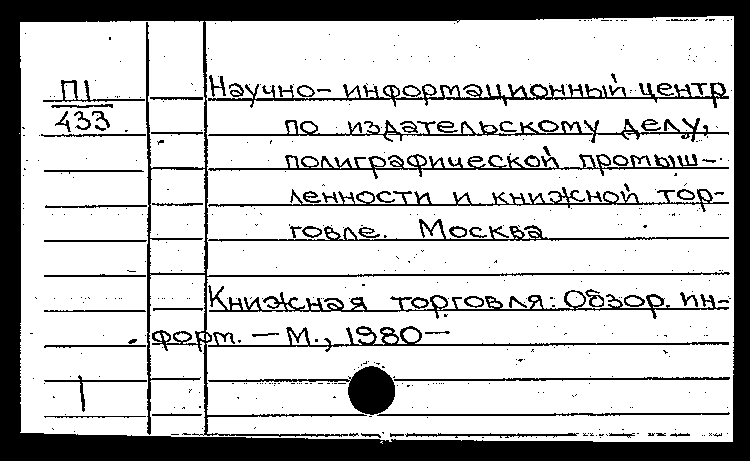 П1
433
Научно-информационный центр
по издательскому делу,
полиграфической промыш-
ленности и книжной тор-
говле. Москва
Книжная торговля: Обзор. ин-
форм. — М., 1980—